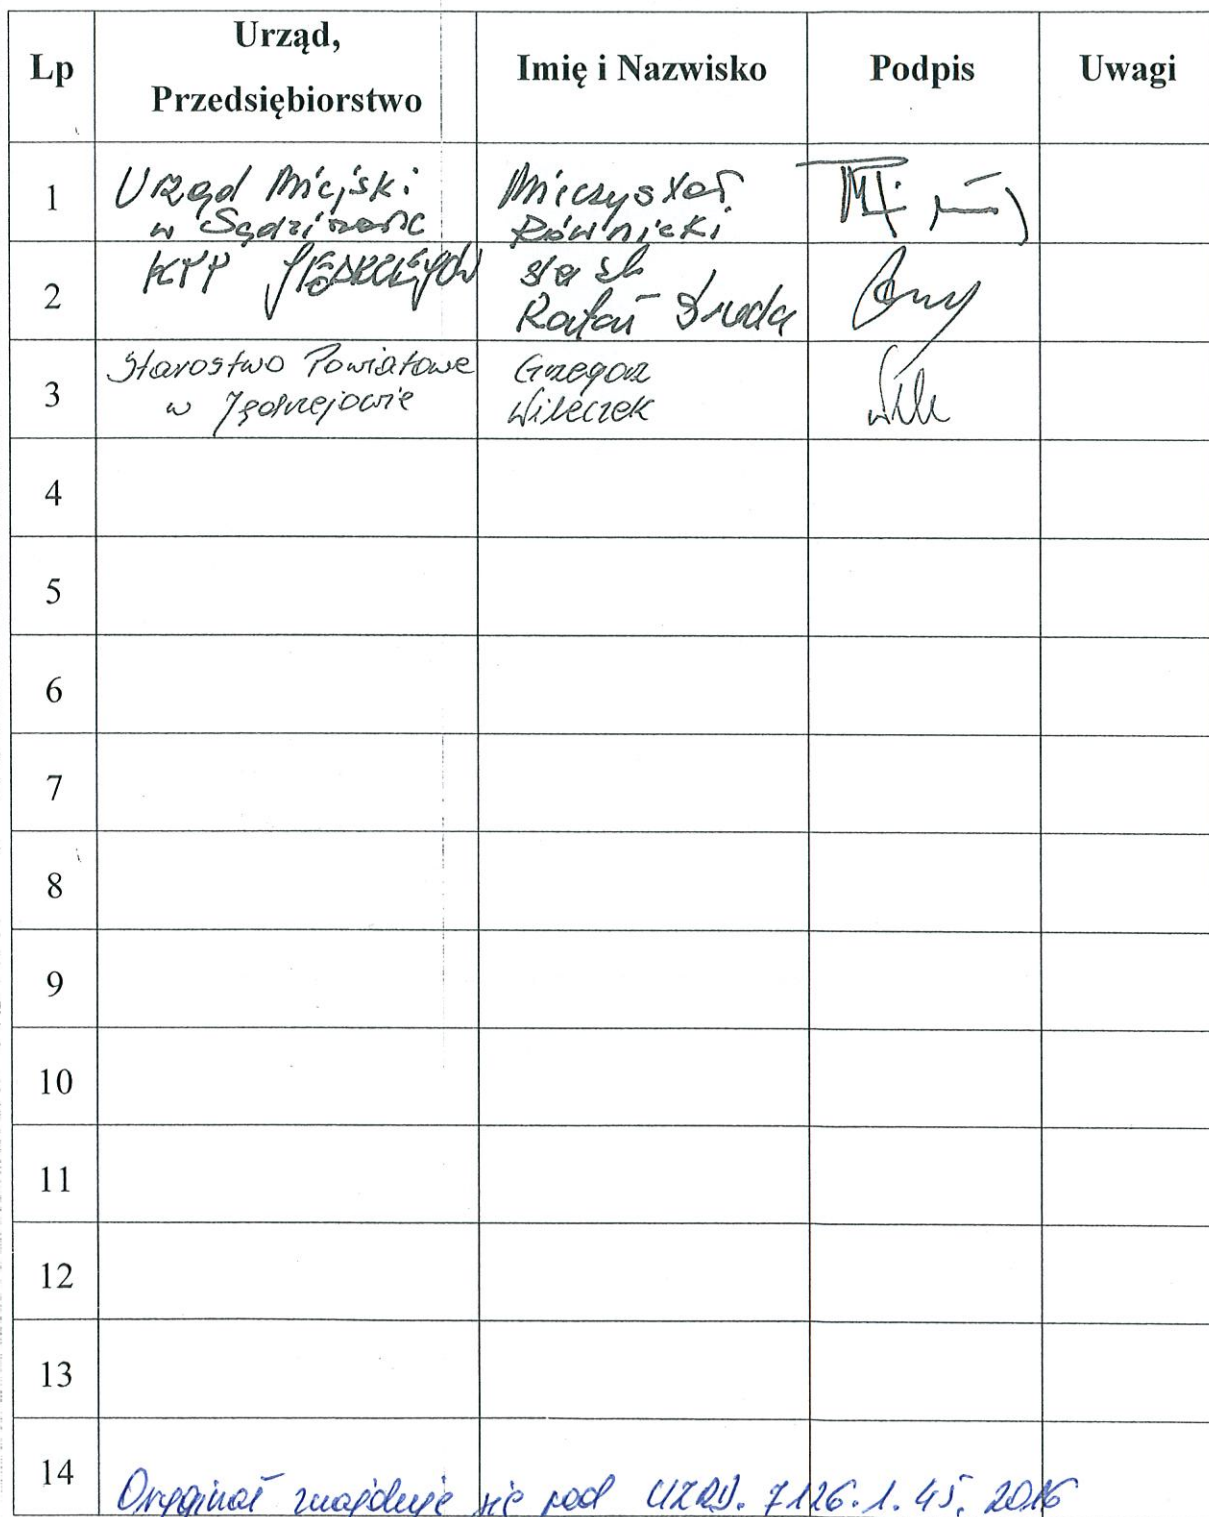 Lp
Urząd,
Przedsiębiorstwo
Imię i Nazwisko
Podpis
Uwagi
1
Urząd Miejski
w Sędziszowie
Mieczysław
Równicki
2
KPP Jędrzejów
Rafał Środa
3
Starostwo Powiatowe
w Jędrzejowie
Grzegorz
Wileczek
4
5
6
7
8
9
10
11
12
13
14
Oryginał znajduje się pod 7126.1.45.2016